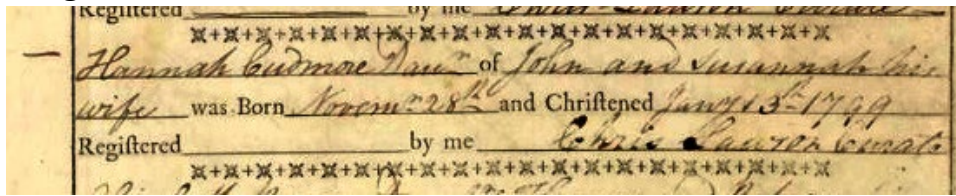 Registered by me Chris Lawson Curate
Hannah Cudmore Daur of John and Susannah his
wife was Born Novemr 28th and Chriſtened Jany 13th 1799
Regiſtered by me Chris Lawson Curate